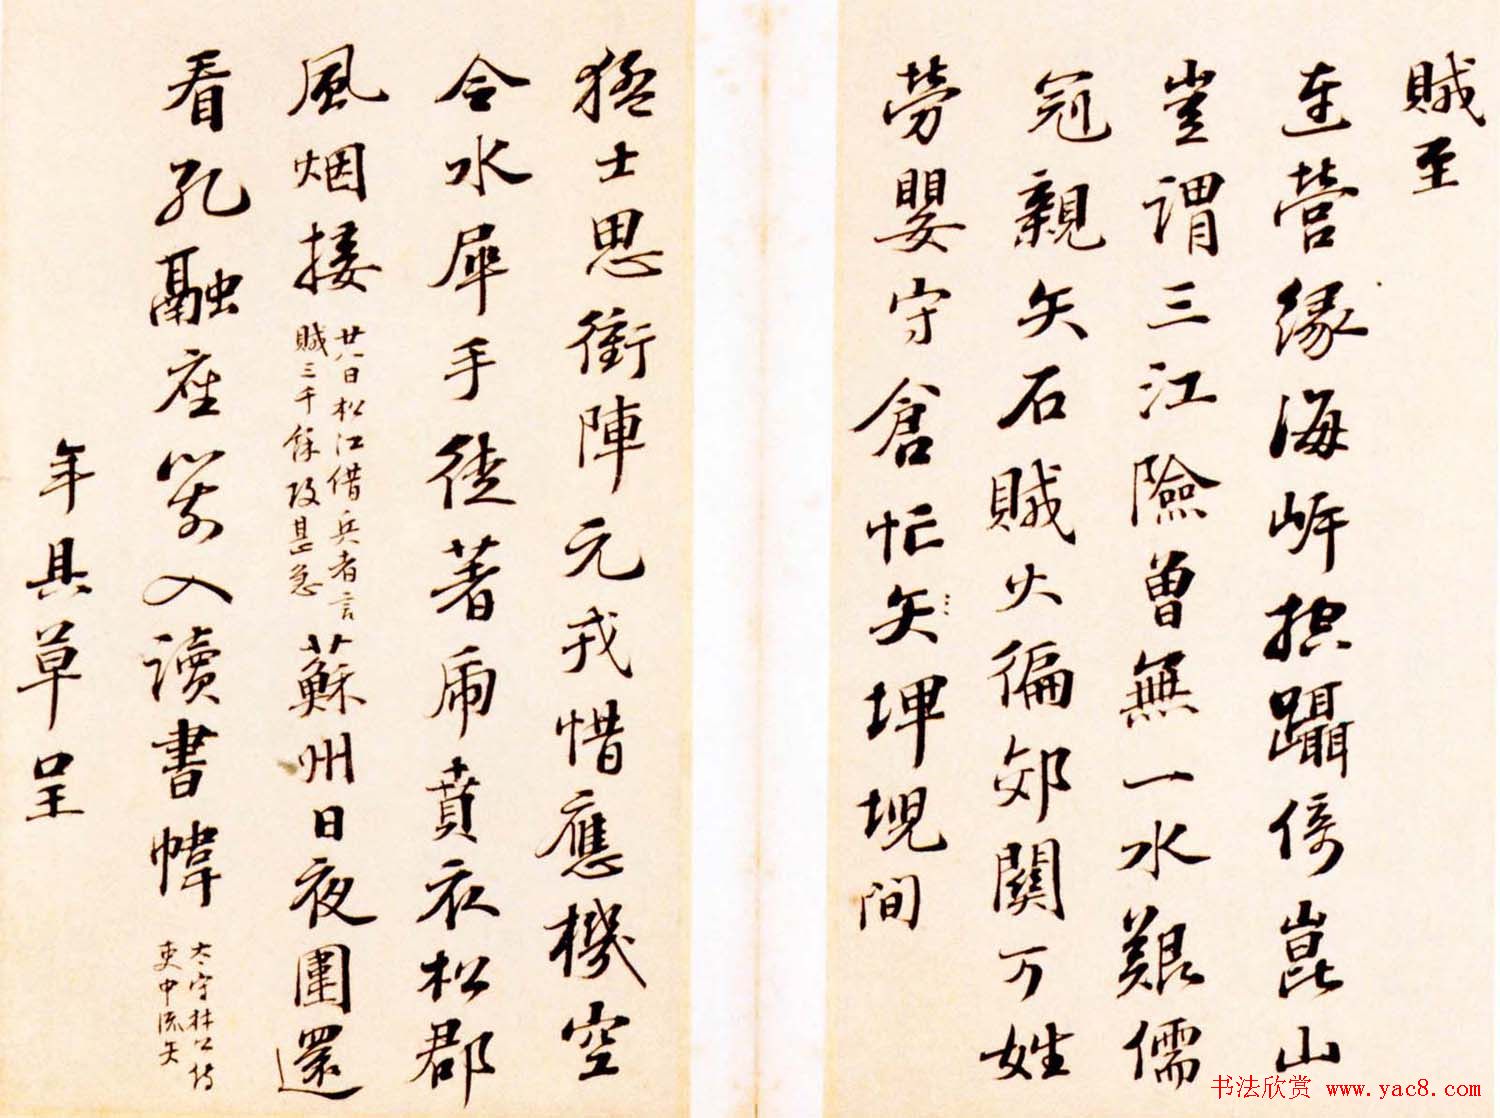 賊至
連營緣海岍控躡倚崑山
豈謂三江險曾無一水艱儒
冠親矢石賊火徧郊關万姓
勞嬰守倉忙矢埤堄間
猛士思衝陣元戎惜應機空
令水犀手徒著虎賁衣松郡
風烟接
廿八日松江借兵者言
賊三千餘攻甚急
蘇州日夜圍還
看孔融座箭入讀書幃
太守林公
吏中流矢
年具草呈
书法欣赏 www.yac8.com